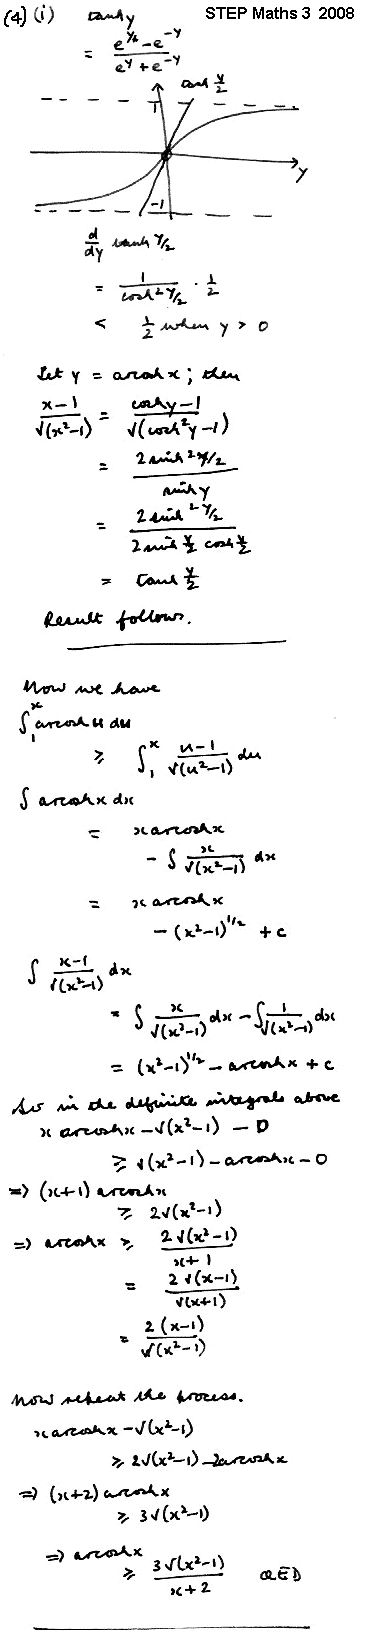 (4) (i) tanh y STEP Maths 3 2008
= (e^y - e^-y)/(e^y + e^-y)
tanh y/2
1
y
-1
d/dy tanh y/2
= 1/(cosh² y/2) · 1/2
< 1/2 when y > 0
Let y = arcosh x ; then
(x-1)/√(x²-1) = (cosh y - 1)/√(cosh² y - 1)
= (2 sinh² y/2)/(sinh y)
= (2 sinh² y/2)/(2 sinh y/2 cosh y/2)
= tanh y/2
Result follows.
Now we have
∫₁ˣ arcosh u du
≥ ∫₁ˣ (u-1)/√(u²-1) du
∫ arcosh x dx
= x arcosh x
- ∫ x/√(x²-1) dx
= x arcosh x
- (x²-1)^1/2 + c
∫ (x-1)/√(x²-1) dx
= ∫ x/√(x²-1) dx - ∫ 1/√(x²-1) dx
= (x²-1)^1/2 - arcosh x + c
So in the definite integrals above
x arcosh x - √(x²-1) - 0
≥ √(x²-1) - arcosh x - 0
⇒ (x+1) arcosh x
≥ 2√(x²-1)
⇒ arcosh x ≥ 2√(x²-1)/(x+1)
= 2√(x-1)/√(x+1)
= 2(x-1)/√(x²-1)
Now repeat the process.
x arcosh x - √(x²-1)
≥ 2√(x²-1) - 2arcosh x
⇒ (x+2) arcosh x
≥ 3√(x²-1)
⇒ arcosh x
≥ 3√(x²-1)/(x+2) QED